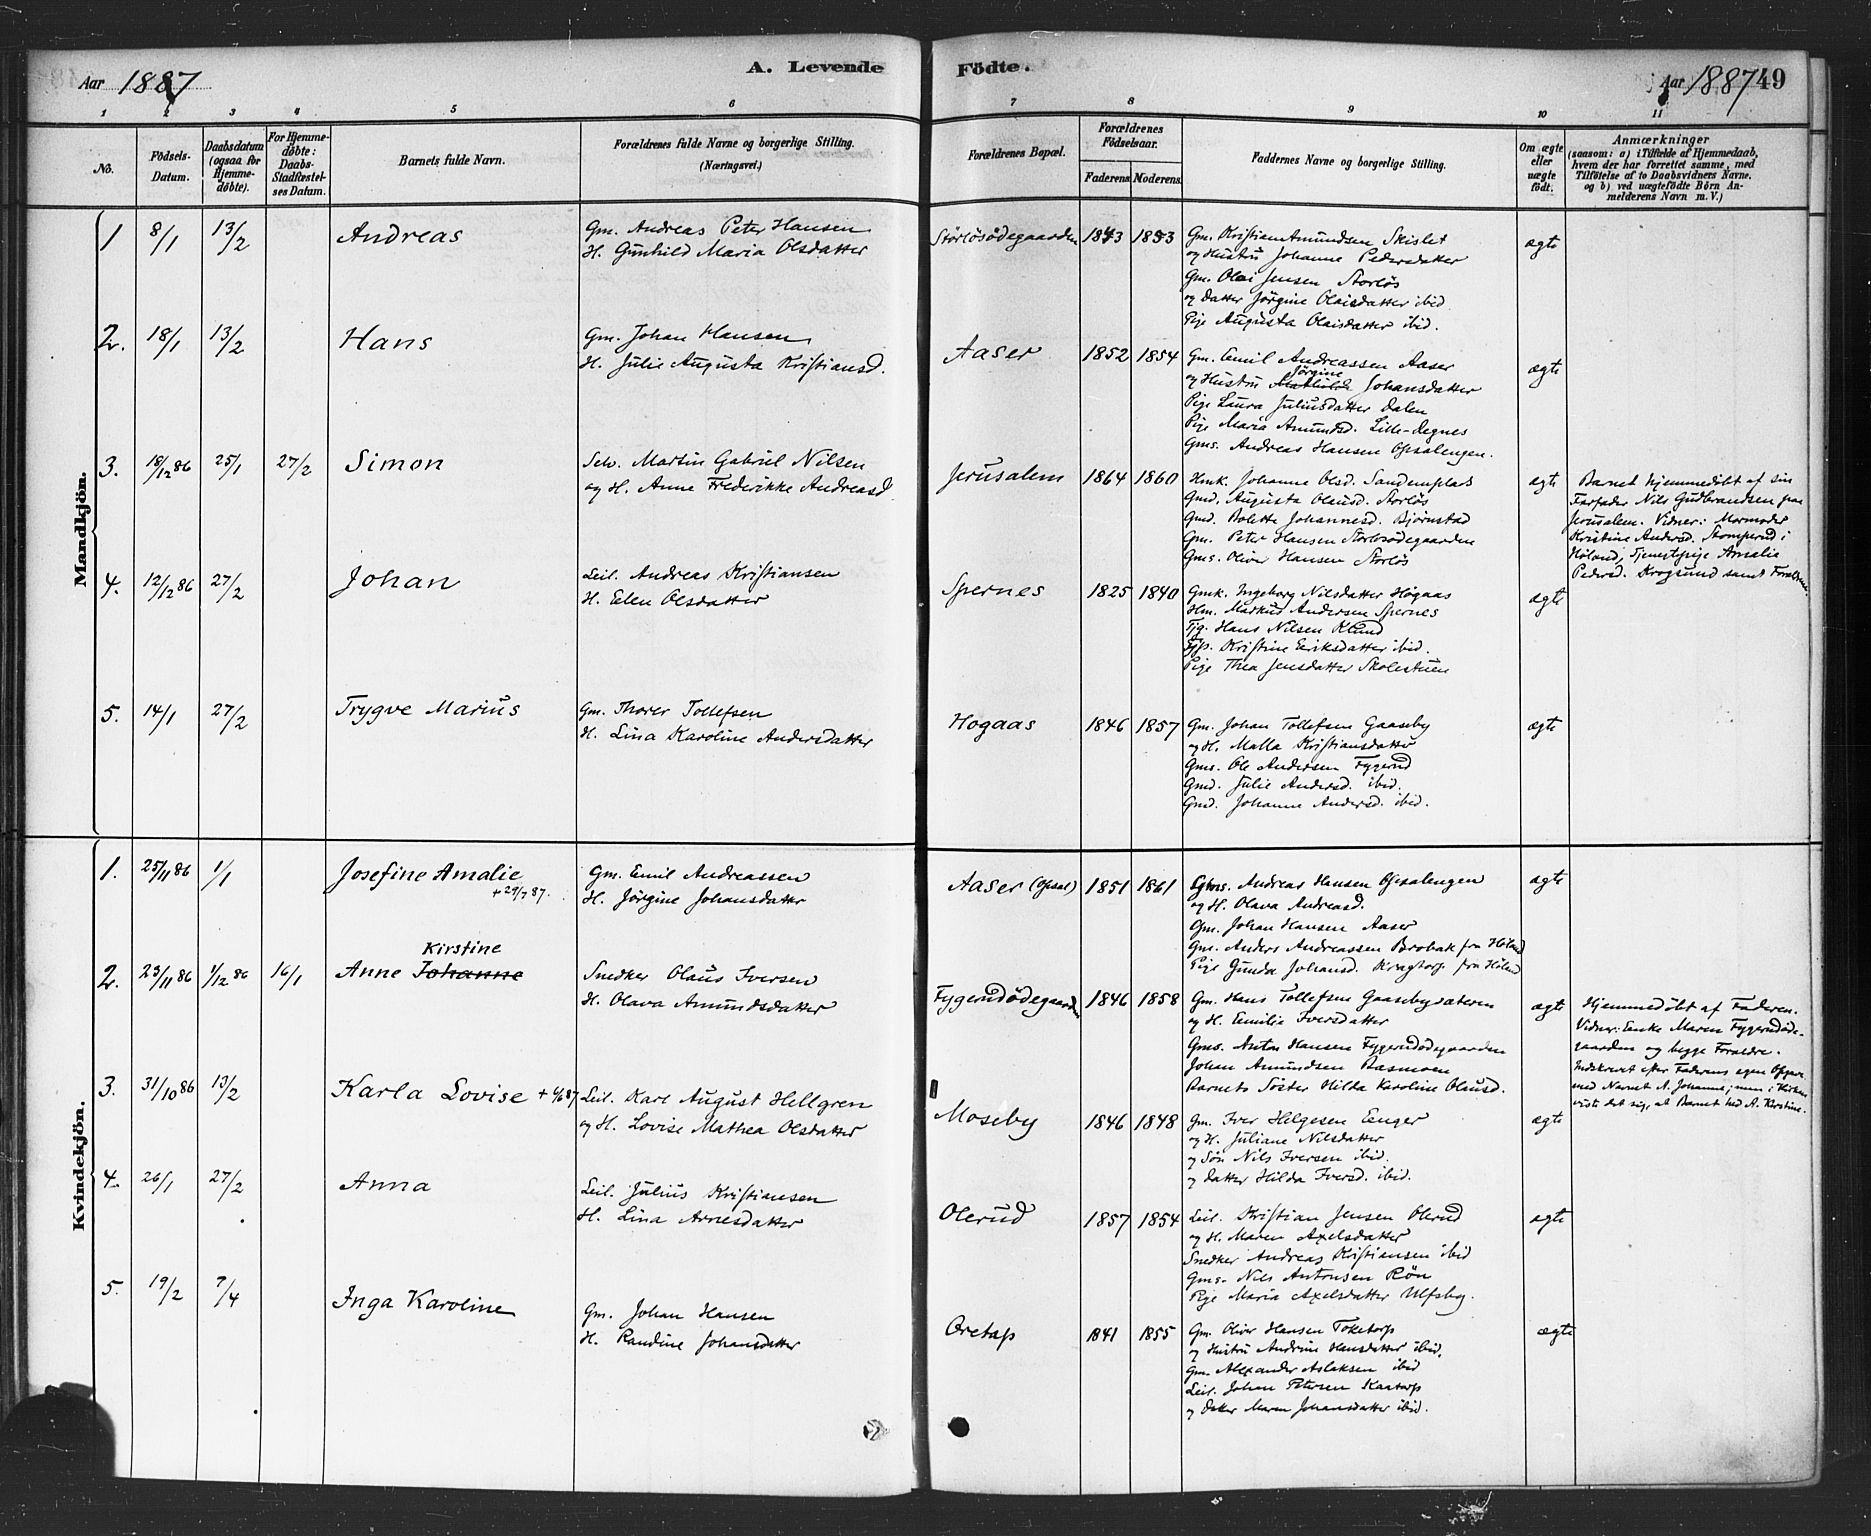 Aar 1887
A. Levende
Födte.
Aar 1887 49
1 2 3 4 5 6 7 8 9 10 11
No.
Födsels-
Datum.
Daabsdatum
(ogsaa for
Hjemme-
döbte).
For Hjemme-
döbte:
Daabs-
Stadfæstel-
ses Datum.
Barnets fulde Navn.
Forældrenes fulde Navne og borgerlige Stilling.
(Næringsvei.)
Forældrenes Bopæl.
Forældrenes
Födselsaar.
Faderens. Moderens.
Faddernes Navne og borgerlige Stilling.
Om ægte
eller
uægte
födt.
Anmærkninger
(saasom: a) i Tilfælde af Hjemmedaab,
hvem der har forrettet samme, med
Tilföielse af to Daabsvidners Navne.
og b) ved uægtefödte Börn An-
melderens Navn m. V.)
Mandkjön.
1 8/1 13/2 Andreas
Gm. Andreas Peter Hansen
H. Gunhild Maria Olsdatter
Störlösödegaarden 1843 1853
Gm. Kristian Amundsen Skislet
og Hustru Johanne Pedersdatter
Gm. Olai Jensen Storlös
og Datter Jörgine Olaisdatter ibid
Pige Augusta Olaisdatter ibid.
ægte
2. 18/1 13/2 Hans
Gm. Johan Hansen
H. Julie Augusta Kristiansd.
Aaser 1852 1854
Gm. Emil Andreassen Aaser
og Hustru Mathilde Jörgine Johansdatter
Pige Laura Juliusdatter Dalen
Pige Maria Amundsd. Lille-Degnes
Gms. Andreas Hansen Opsalengen.
ægte
3. 18/12 86 25/1 27/2 Simon
Selv. Martin Gabriel Nilsen
og H. Anne Frederikke Andreasd
Jerusalem 1864 1860
Hmk. Johanne Olsd. Sandemplads
Gmd. Augusta Olausd. Storlös
Gmd. Bolette Johannesd. Björnstad
Gm. Peter Hansen Störlösödegaarden
Gms. Oliver Hansen Storlös
ægte
Barnet hjemmedöbt af sin
Farfader Nils Gudbrandsen paa
Jerusalem. Vidner: Mormoder
Kristine Andersd. Stomperud i
Höland, Tjenestpige Amalie
Pedersd. Krogsund samt Foraldrene.
4. 12/12 86 27/2 Johan
Leil. Andreas Kristiansen
H. Elen Olsdatter
Spernes 1825 1840
Gmk. Ingeborg Nilsdatter Högaas
Hm. Markus Andersen Spernes
Tjg. Hans Nilsen Klund
Tjp. Kristine Eriksdatter ibid.
Pige Thea Jensdatter Skolestuen
ægte
5. 14/1 27/2 Trygve Marius
Gm. Thorer Tollefsen
H. Lina Karoline Andersdatter
Hogaas 1846 1857
Gm. Johan Tollefsen Gaaseby
og H. Malla Kristiansdatter
Gms. Ole Andersen Fygerud
Gmd. Julie Andersd. ibid.
Gmd. Johanne Andersd. ibid.
ægte
Kvindekjön.
1. 25/11 86 1/1 Josefine Amalie
+ 29/7 87.
Gm. Emil Andreassen
H. Jörgine Johansdatter
Aaser (Opsal) 1851 1861
Gms. Andreas Hansen Opsalengen
og H. Olava Andreasd.
Gm. Johan Hansen Aaser
Gm. Anders Andreassen Brobak fra Höland
Pige Gunda Johansd. Kragtorp fra Höland
ægte
Kirstine
2. 23/11 86 1/12 86 16/1 Anne Johanne
Snedker Olaus Iversen
H. Olava Amundsdatter
Fygerudödegaarden 1846 1858
Gm. Hans Tollefsen Gaasebysæteren
og H. Emilie Iversdatter
Gms. Anton Hansen Fygerudödegaarden
Johan Amundsen Rasmoen
Barnets Söster Hilda Karoline Olausd.
ægte
Hjemmedöbt af Faderen.
Vidner: Enke Maren Fygerudöde-
gaarden og begge Foraldre.
Indskrevet efter Faderens egen Opgave
med Navnet A. Johanne; men i Kirken
viste det sig, at Barnet hed A. Kirstine.
3. 31/10 86 13/2 Karla Lovise + 4/6 87
Leil. Karl August Hellgren
og H. Lovise Mathea Olsdatter
Moseby 1846 1848
Gm. Iver Helgesen Eenger
og H. Juliane Nilsdatter
og Sön Nils Iversen ibid.
og Datter Hilda Iversd. ibid.
ægte
4. 26/1 27/2 Anna
Leil. Julius Kristiansen
H. Lina Arnesdatter
Olerud 1857 1854
Leil. Kristian Jensen Olerud
og H. Maren Axelsdatter
Snedker Andreas Kristiansen ibid
Gms. Nils Antonsen Rön
Pige Maria Axelsdatter Ulfsby.
ægte
5. 19/2 7/4 Inga Karoline
Gm. Johan Hansen
H. Randine Johansdatter
Oretap 1841 1855
Gm. Oliver Hansen Toketorp
og Hustru Andrine Hansdatter ibid.
Gm. Alexander Aslaksen ibid
Leil. Johan Petersen Kaatorp
og Datter Maren Johansdatter ibid.
ægte